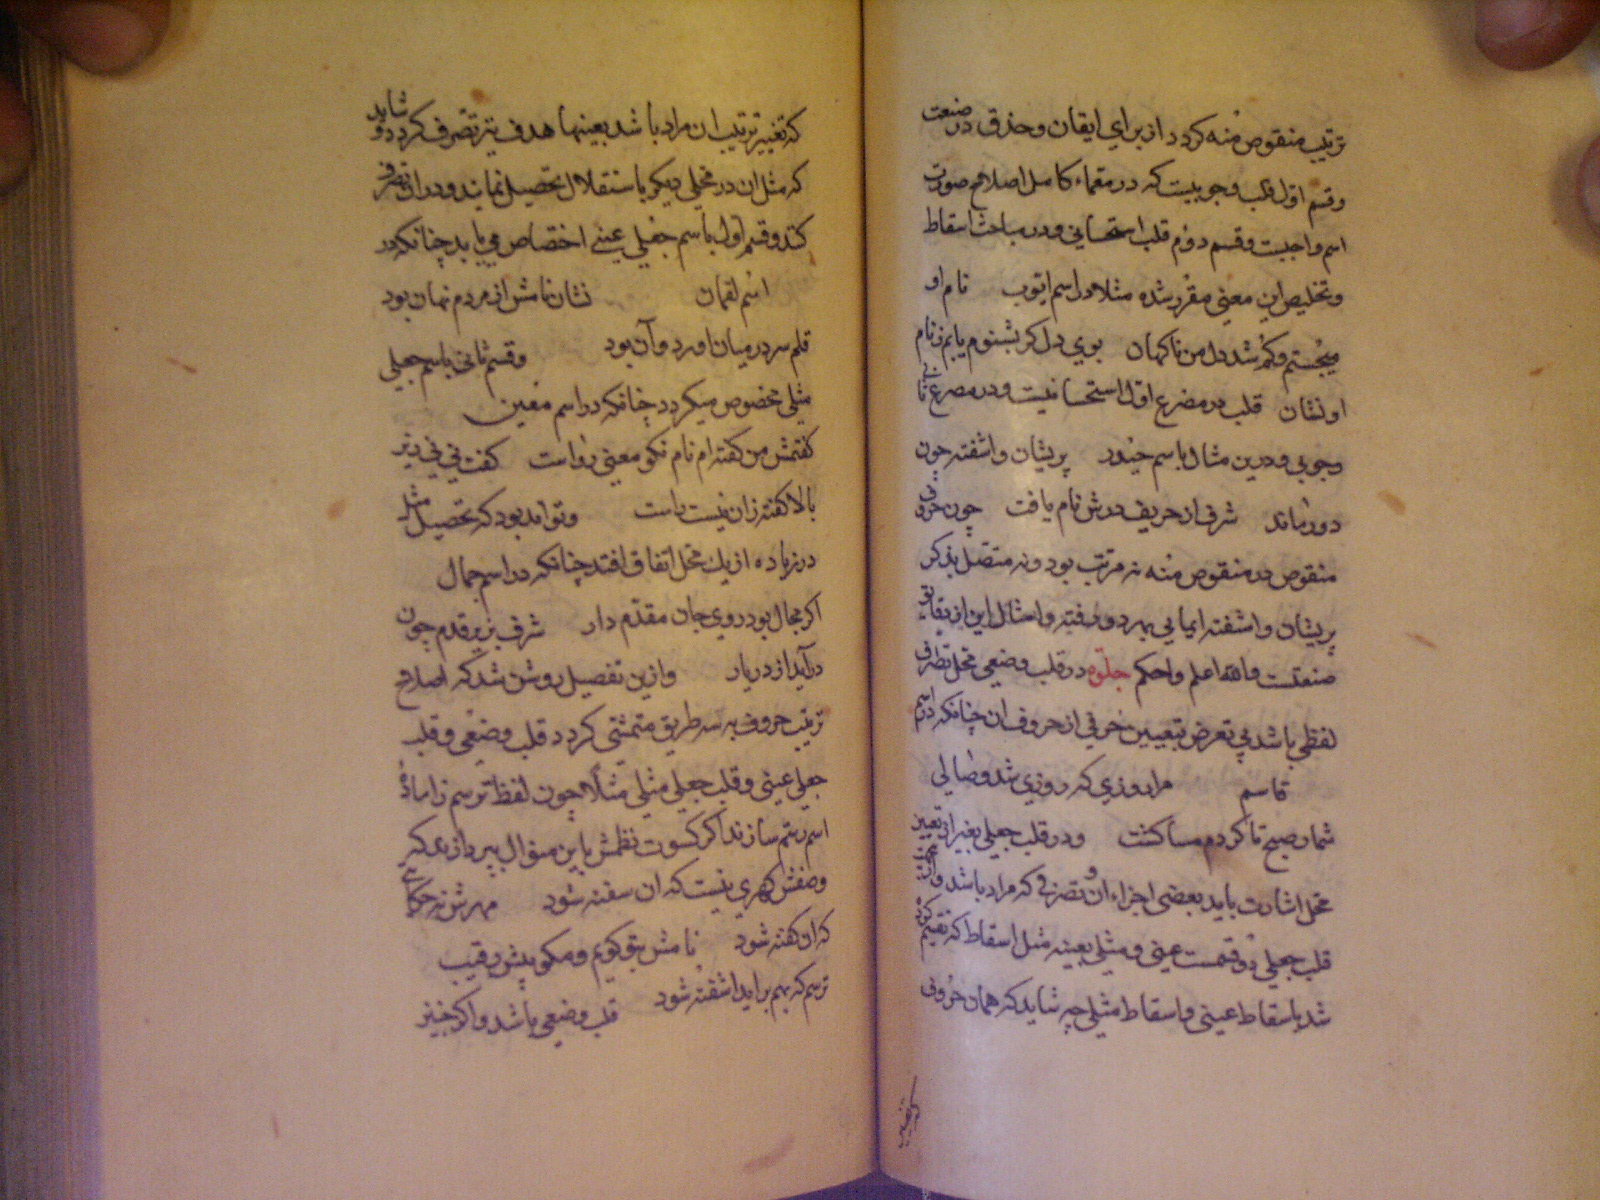 ترتیب منقوص منه کردد از برای ایقان و حذق در صنعت
و قسم اول قلب وجوبیست که در معماء کامل اصلاح صورت
اسم واجبست و قسم دوم قلب استحسانی و در مباحث اسقاط
و تخلیص این معنی مقرر شده مثلا در اسم ایوب نام او
میجستم و کم شد دل من ناکهان بوی دل کر بشنوم یابم ز نام
او نشان قلب در مصرع اول استحسانیست و در مصرع ثانی
وجوبی و درین مثال باسم حیدر پریشان و آشفته چون
دور ماند شرف از حریف درش نام یافت چون حروف
منقوص در منقوص منه نه مرتب بود و نه متصل بذکر
پریشان و آشفته ایمایی بهر دو رفته و امثال این از دقایق
صنعتست والله اعلم و احکم جلوه در قلب وضعی محل تصرف
لفظی باشد بی تعرض بتعیین حرفی از حروف ان چنانکه در اسم
قاسم مرا روزی که روزی شد وصالی
شمار صبح تا کردم مسا کشت و در قلب جعلی بغیر از تعیین
محل اشارت باید ببعضی اجزاء ان و تصرفی که مراد باشد و ازین جهت
قلب جعلی دو قسمست عینی و مثلی بعینه مثل اسقاط که تقسیم کرده
شد باسقاط عینی و اسقاط مثلی چه شاید که همان حروفی
که تغییر
که تغییر ترتیب ان مراد باشد بعینها هدف تیر تصرف کردد و شاید
که مثل ان در محلی دیکر باستقلال تحصیل نمایند و در ان تصرف
کنند و قسم اول باسم جعلی عینی اختصاص می یابد چنانکه در
اسم لقمان نشان نامش از مردم نهان بود
قلم سر در میان اورد و آن بود و قسم ثانی باسم جعلی
مثلی مخصوص میکردد چنانکه در اسم معین
کفتمش من کفته ام نام نکو معنی رواست کفت نی نی زیر
بالا کفته زان نیست راست و تواند بود که تحصیل مثل
در زیاده از یک محل اتفاق افتد چنانکه در اسم جمال
اکر مجال بود روی جان مقدم دار شرف ز یر قدم چون
درآید از در یار و ازین تفصیل روشن شد که اصلاح
ترتیب حروف به سه طریق متمشی کردد قلب وضعی و قلب
جعلی عینی و قلب جعلی مثلی مثلا چون لفظ ترسم را ماده
اسم رستم سازند اکر کسوت نظمش باین منوال بپردازند که
وصفش کهری نیست که ان سفته شود مهرش نه حکایتی
که ان کفته شود نامش بتو کویم و مکو پیش رقیب
ترسم که بهم براید اشفته شود قلب وضعی باشد و اکر جنیز